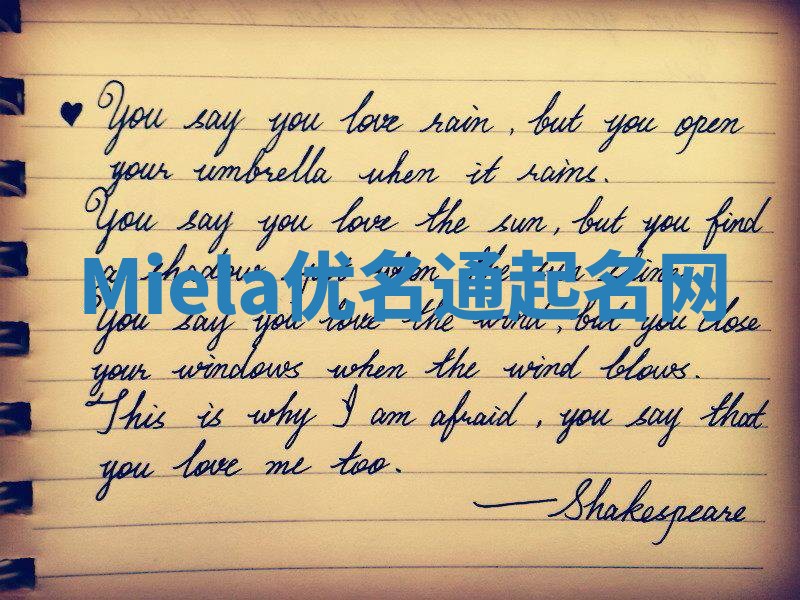 ♥ You say you love rain, but you open
your umbrella when it rains.
You say you love the sun, but you find
a shadow spot when the sun shines.
Miela优名通起名网
You say you love the wind, but you close
your windows when the wind blows.
This is why I am afraid, you say that
you love me too.
—Shakespeare